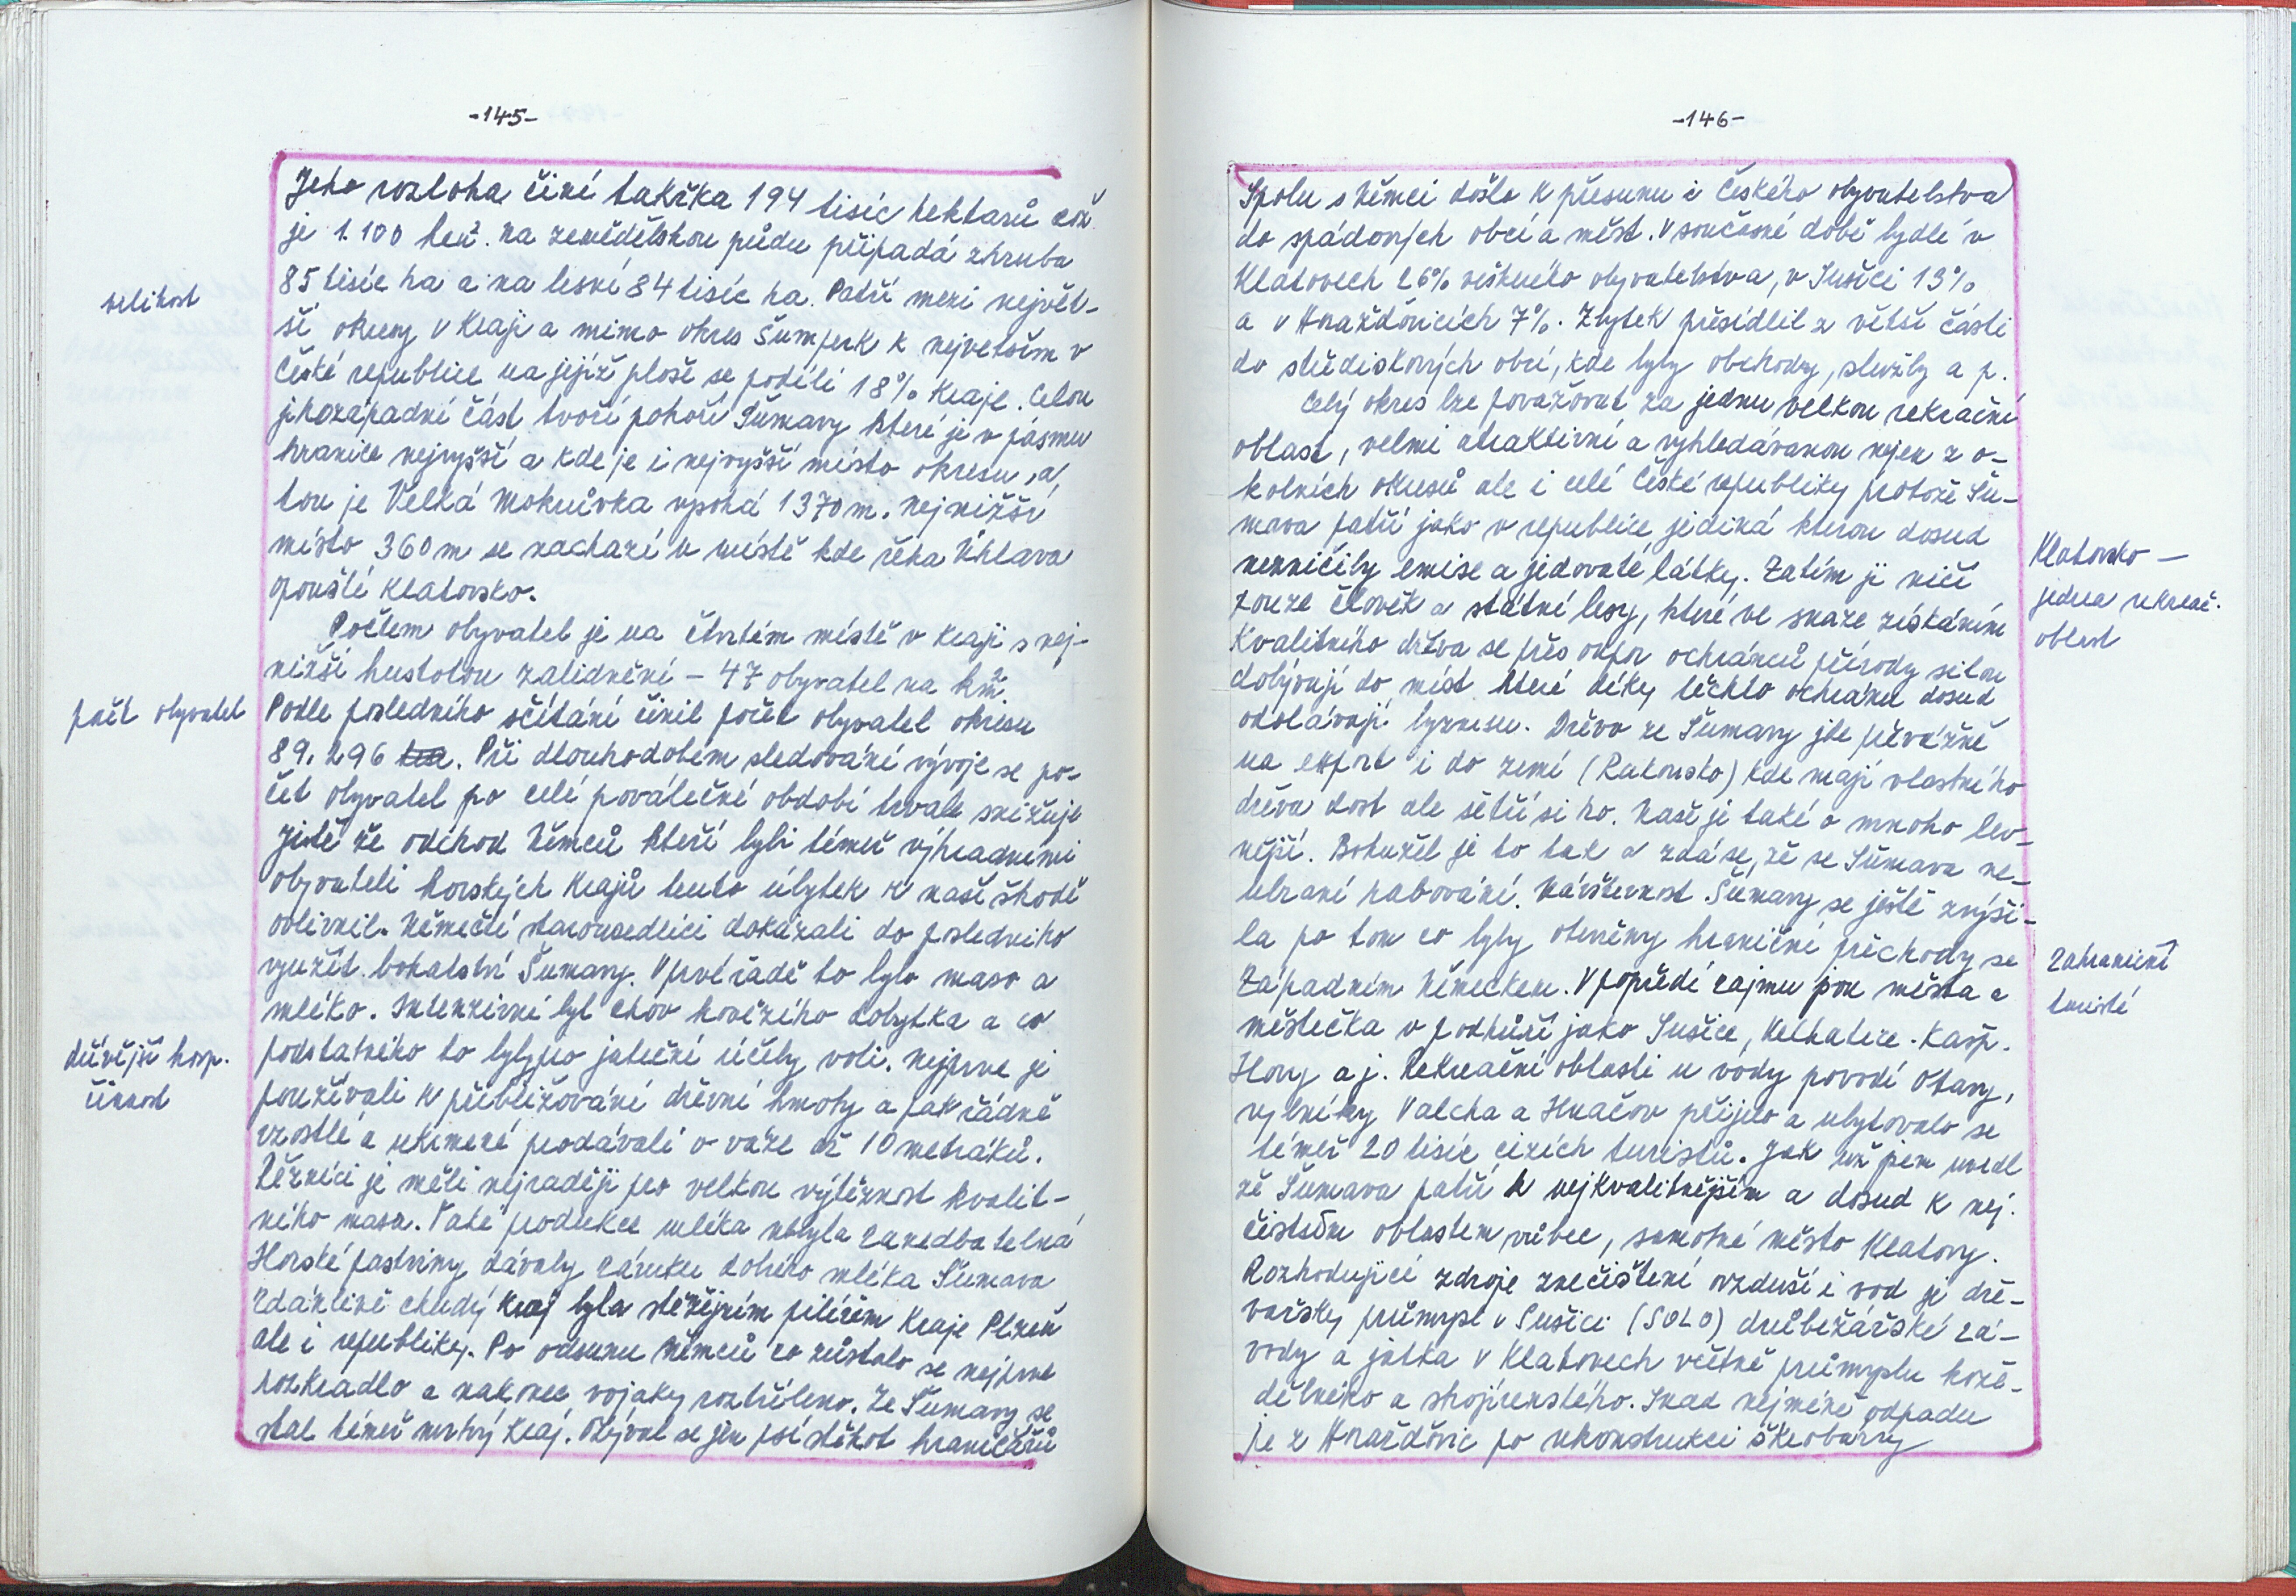 -145-
Jeho rozloha činí takřka 194 tisíc hektarů což
je 1.100 km². Na zemědělskou půdu připadá zhruba
85 tisíc ha a na lesní 84 tisíc ha. Patří mezi největ-
velikost
ší okresy v kraji a mimo okres Šumperk k největším v
České republice na jejíž ploše se podílí 18% kraje. Celou
jihozápadní část tvoří pohoří Šumavy které je v pásmu
hranice nejvyšší a kde je i nejvyšší místo okresu, a
tou je Velká Mokrůvka vysoká 1370 m. Nejnižší
místo 360 m se nachází v místě kde řeka Úhlava
opouští Klatovsko.
Počtem obyvatel je na čtvrtém místě v kraji s nej-
nižší hustotou zalidnění - 47 obyvatel na km².
počet obyvatel
Podle posledního sčítání činil počet obyvatel okresu
89.296 ha. Při dlouhodobém sledování vývoje se po-
čet obyvatel po celé poválečné období trvale snižuje
Jistě že odchod Němců kteří byli téměř výhradními
obyvateli horských krajů tento úbytek k naší škodě
ovlivnil. Němečtí starousedlíci dokázali do posledního
využít bohatství Šumavy. V prvé řadě to bylo maso a
mléko. Intenzivní byl chov hovězího dobytka a co
dřívější hosp.
činnost
podstatného to byly pro jateční účely voli. Nejprve je
používali k přibližování dřevní hmoty a pak řádně
vzrostlé a vykrmené prodávali o váze až 10 metráků.
Řezníci je měli nejraději pro velkou výtěžnost kvalit-
ního masa. Také produkce mléka nebyla zanedbatelná
Horské pastviny dávaly záruku dobrého mléka Šumava
zdánlivě chudý kraj byla stěžejním pilířem kraje Plzeň
ale i republiky. Po odsunu Němců co zůstalo se nejprve
rozkradlo a nakonec vojáky rozstříleno. Ze Šumavy se
stal téměř mrtvý kraj. Ozýval se jen psí štěkot hraničářů
-146-
Spolu s Němci došlo k přesunu i českého obyvatelstva
do spádových obcí a měst. V současné době bydlí v
Klatovech 26% veškerého obyvatelstva, v Sušici 13%
a v Horažďovicích 7%. Zbytek přesídlil z větší části
do střediskových obcí, kde byly obchody, služby a p.
Celý okres lze považovat za jednu velkou rekreační
oblast, velmi atraktivní a vyhledávanou nejen z o-
kolních okresů ale i celé České republiky protože Šu-
mava patří jako v republice jediná kterou dosud
nezničily emise a jedovaté látky. Zatím ji ničí
Klatovsko -
jedna rekreač.
oblast
pouze člověk a státní lesy, které ve snaze získáním
kvalitního dřeva se přes odpor ochránců přírody silou
dobývají do míst které díky těchto ochránců dosud
odolávají byznesu. Dřevo ze Šumavy jde převážně
na export i do zemí (Rakousko) kde mají vlastního
dřeva dost ale šetří si ho. Naše je také o mnoho lev-
nější. Bohužel je to tak a zdá se, že se Šumava ne-
ubrání rabování. Návštěvnost Šumavy se ještě zvýši-
la po tom co byly otevřeny hraniční přechody se
zahraniční
turisté
Západním Německem. V popředí zájmu jsou města a
městečka v podhůří jako Sušice, Velhatice. Kašp.
Hory a j. Rekreační oblasti u vody povodí Otavy,
rybníky Valcha a Hnačov přijelo a ubytovalo se
téměř 20 tisíc cizích turistů. Jak už jsem uvedl
že Šumava patří k nejkvalitnějším a dosud k nej.
čistším oblastem vůbec, samotné město Klatovy.
Rozhodující zdroje znečištění ovzduší i vod je dře-
vařský průmysl v Sušici (SOLO) drůbežářské zá-
vody a jatka v Klatovech včetně průmyslu kože-
dělného a strojírenského. Snad nejméně odpadu
je z Horažďovic po rekonstrukci škrobárny